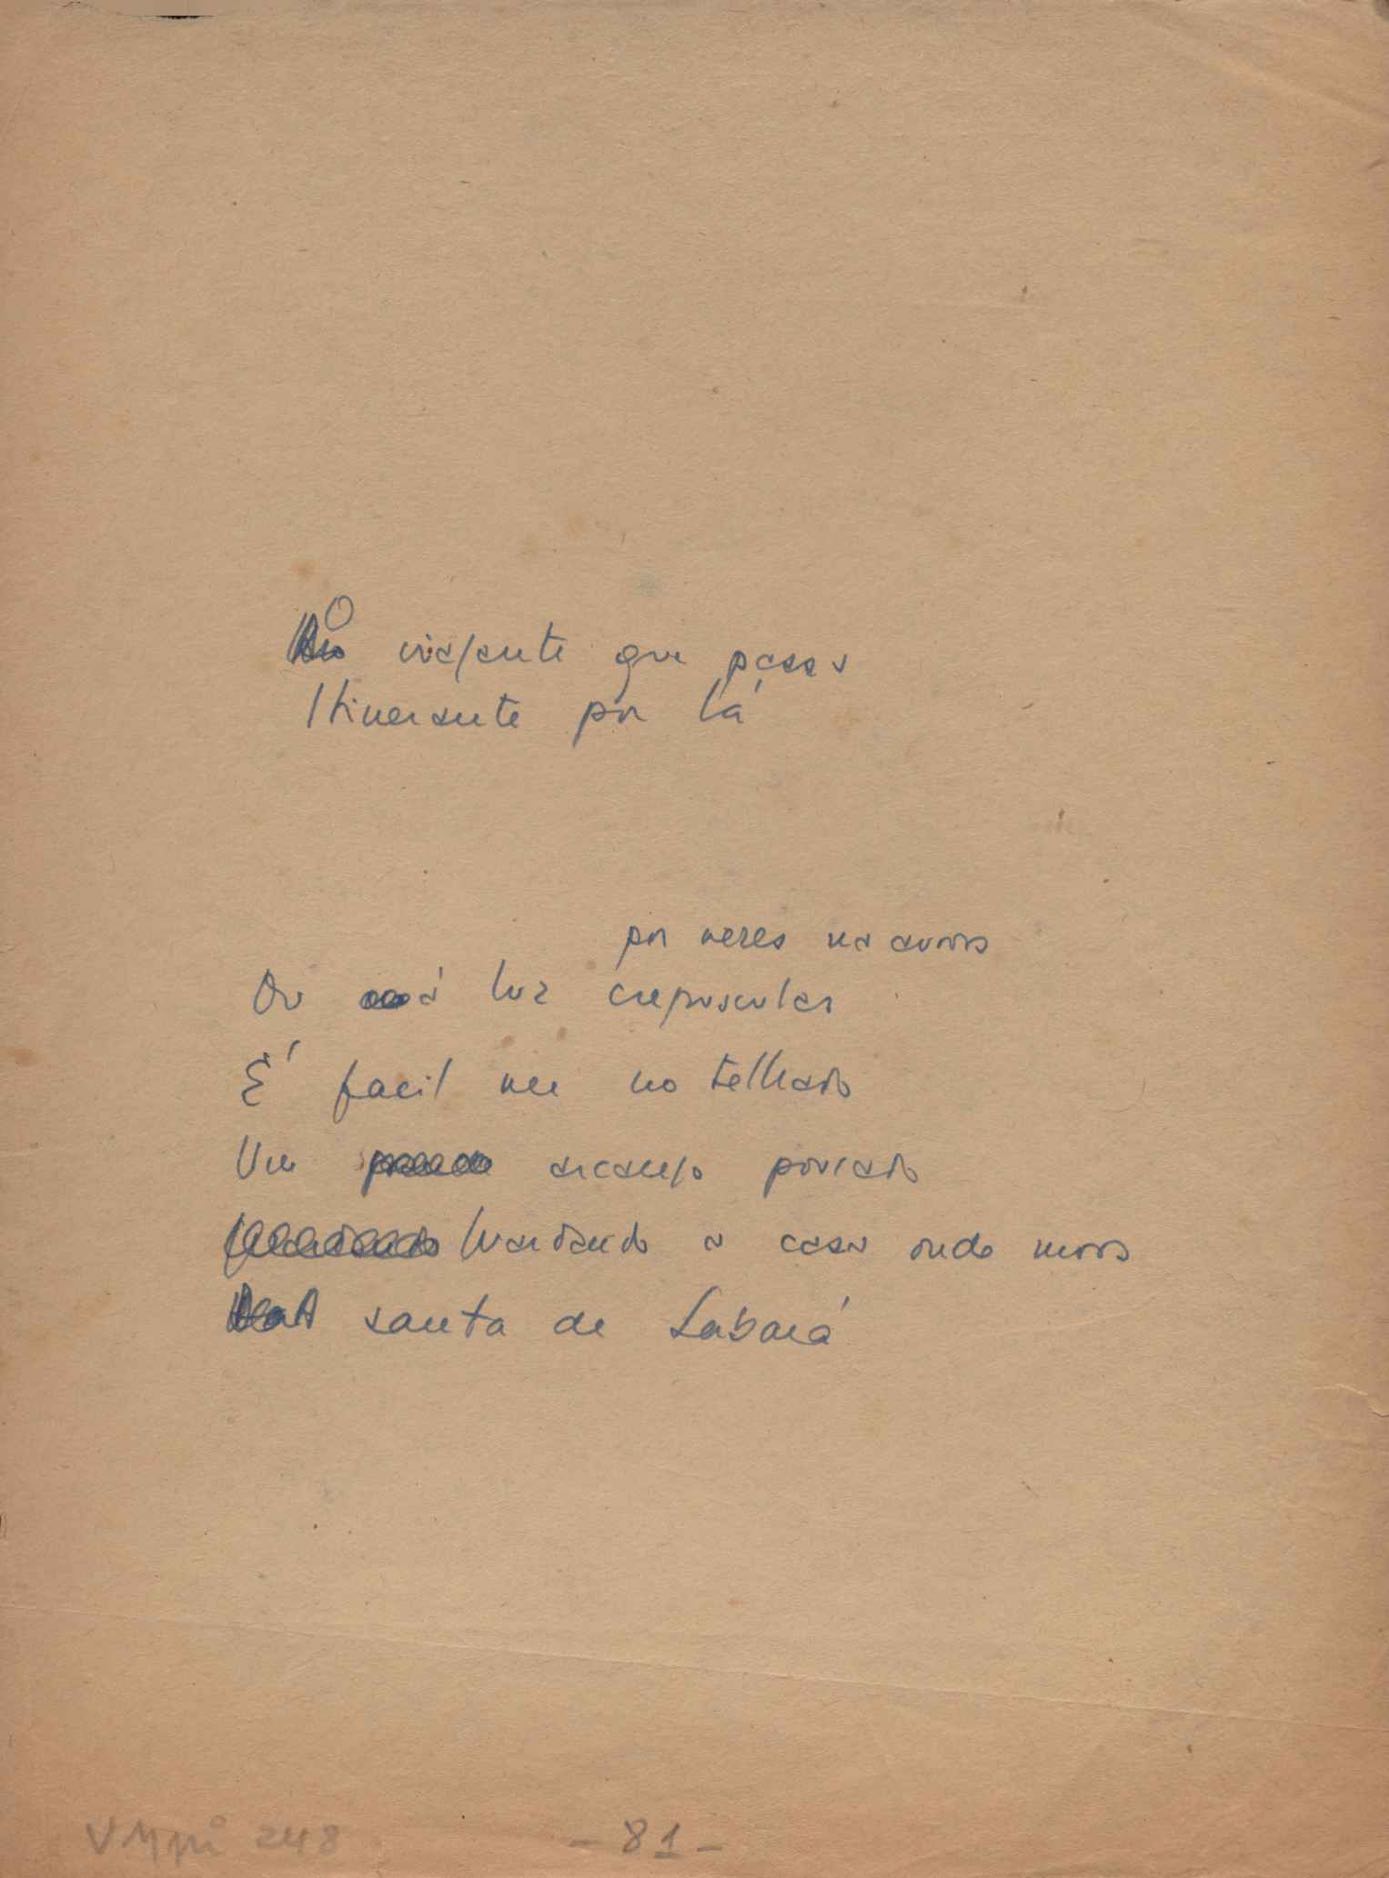 O viajante que passa
Itinerante por lá
por vezes na aurora
Ou à luz crepuscular
É facil ver no telhado
Um arcanjo pousado
Guardando a casa onde mora
A santa de Sabará
VMpi 248
- 81 -